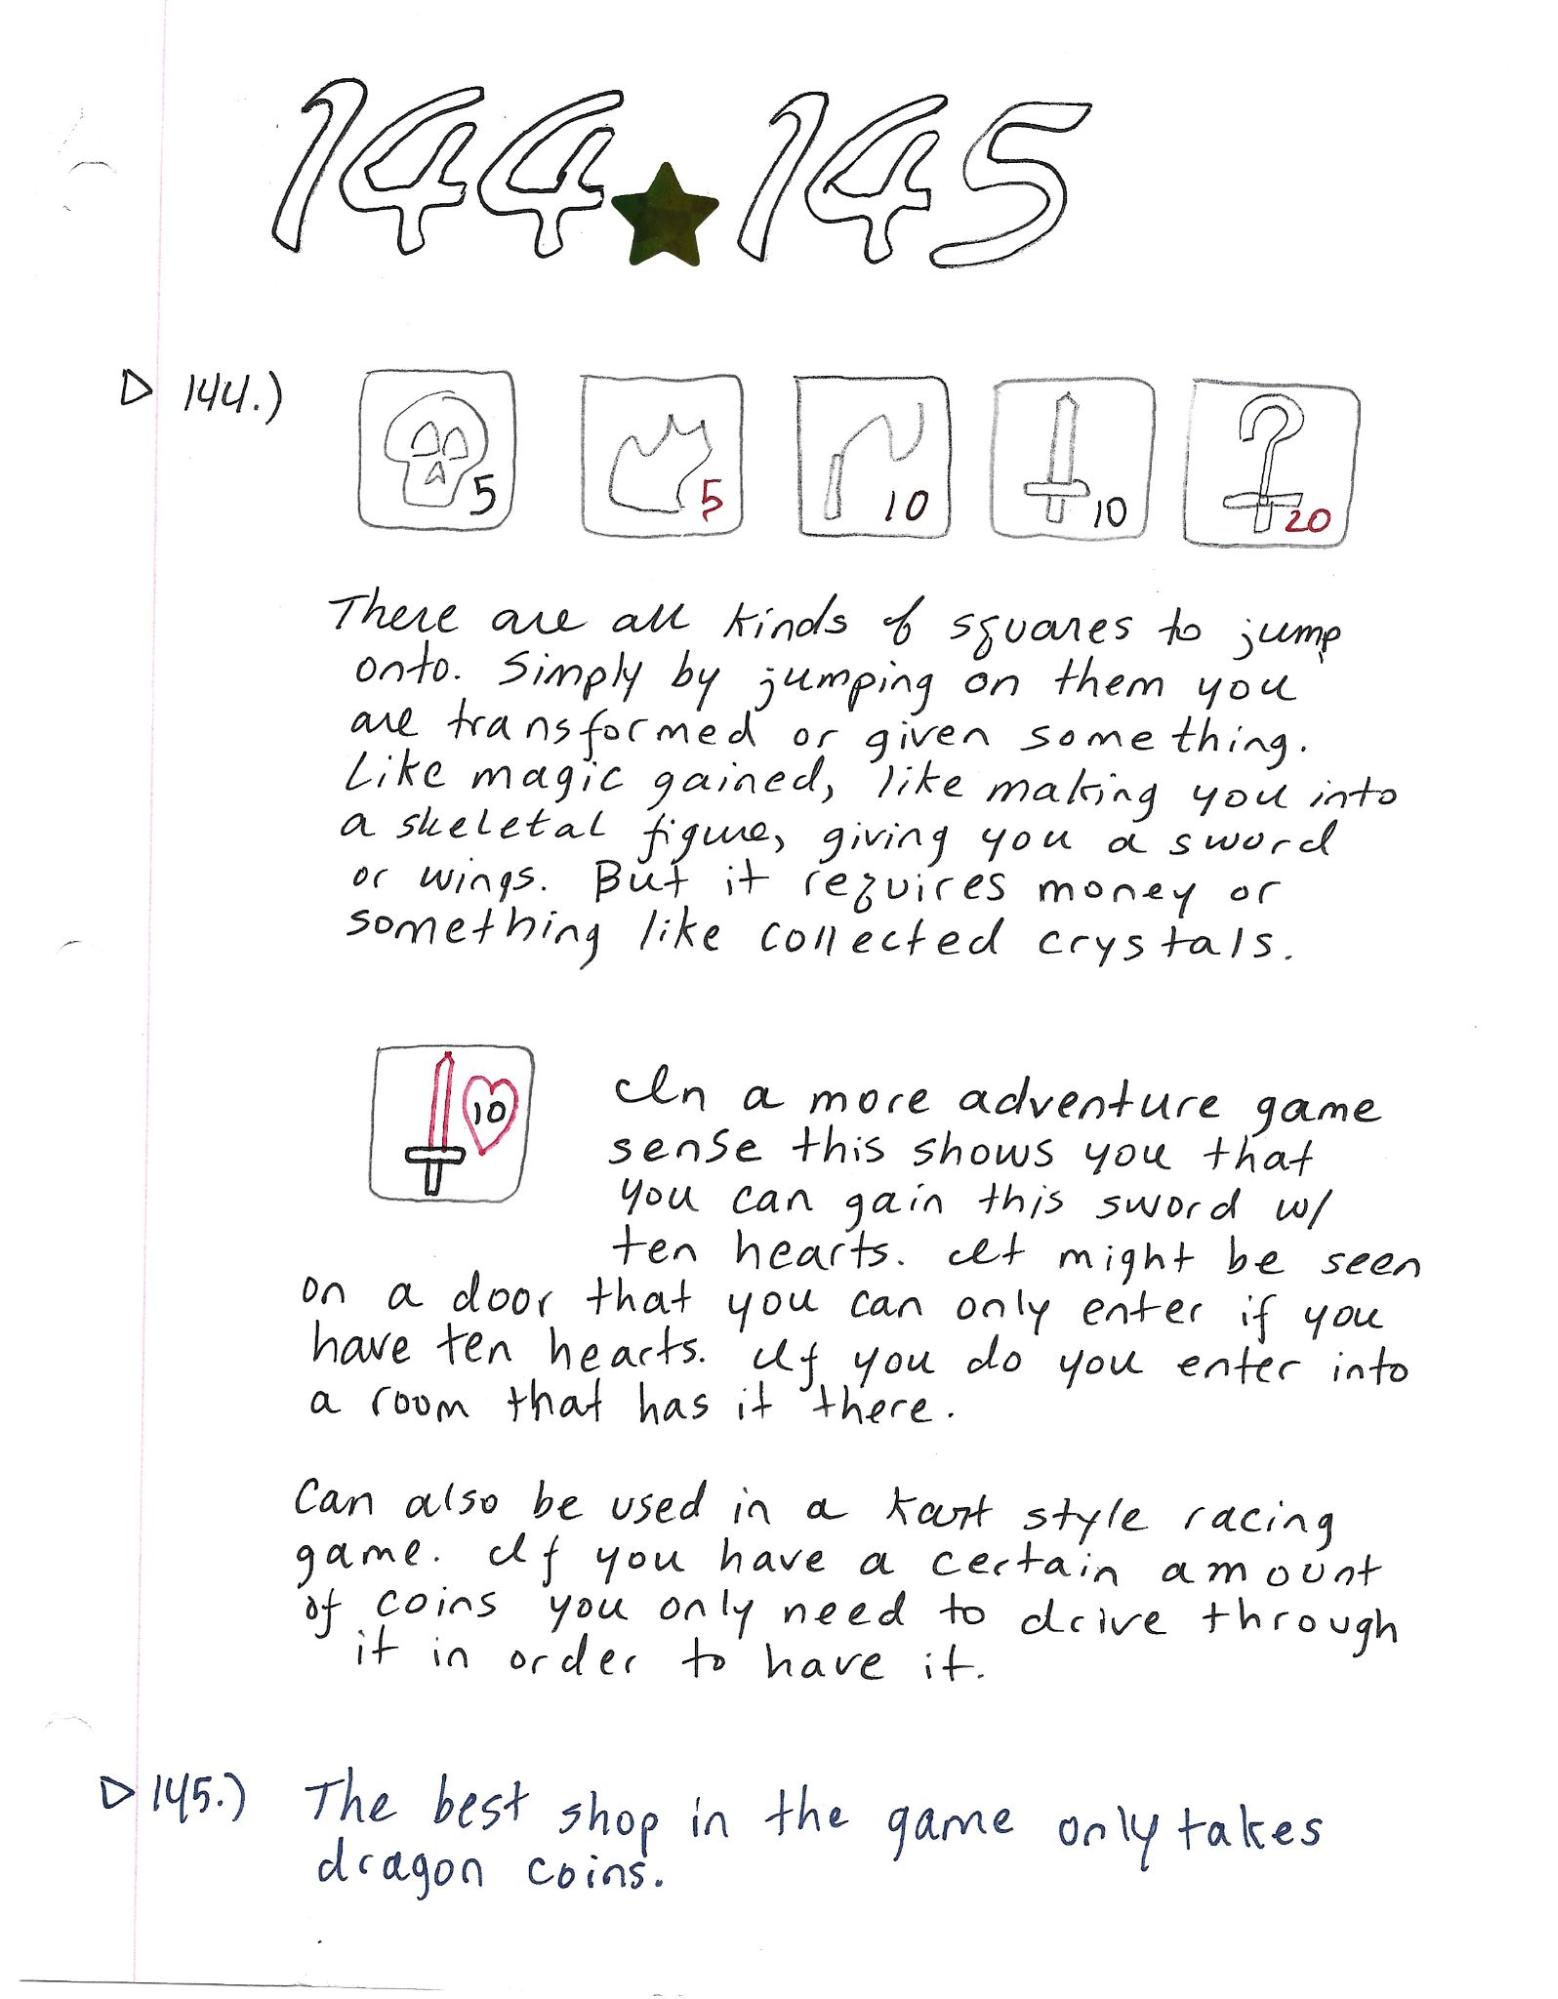 144 145
144.)
5 5 10 10 20
There are all kinds of squares to jump
onto. Simply by jumping on them you
are transformed or given something.
Like magic gained, like making you into
a skeletal figure, giving you a sword
or wings. But it requires money or
something like collected crystals.
10
In a more adventure game
sense this shows you that
you can gain this sword w/
ten hearts. It might be seen
on a door that you can only enter if you
have ten hearts. If you do you enter into
a room that has it there.
Can also be used in a Kart style racing
game. If you have a certain amount
of coins you only need to drive through
it in order to have it.
145.) The best shop in the game only takes
dragon coins.